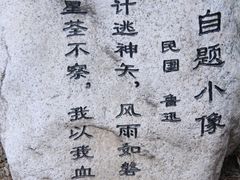 自题小像
民国 鲁迅
计逃神矢，风雨如磐
星荃不察，我以我血